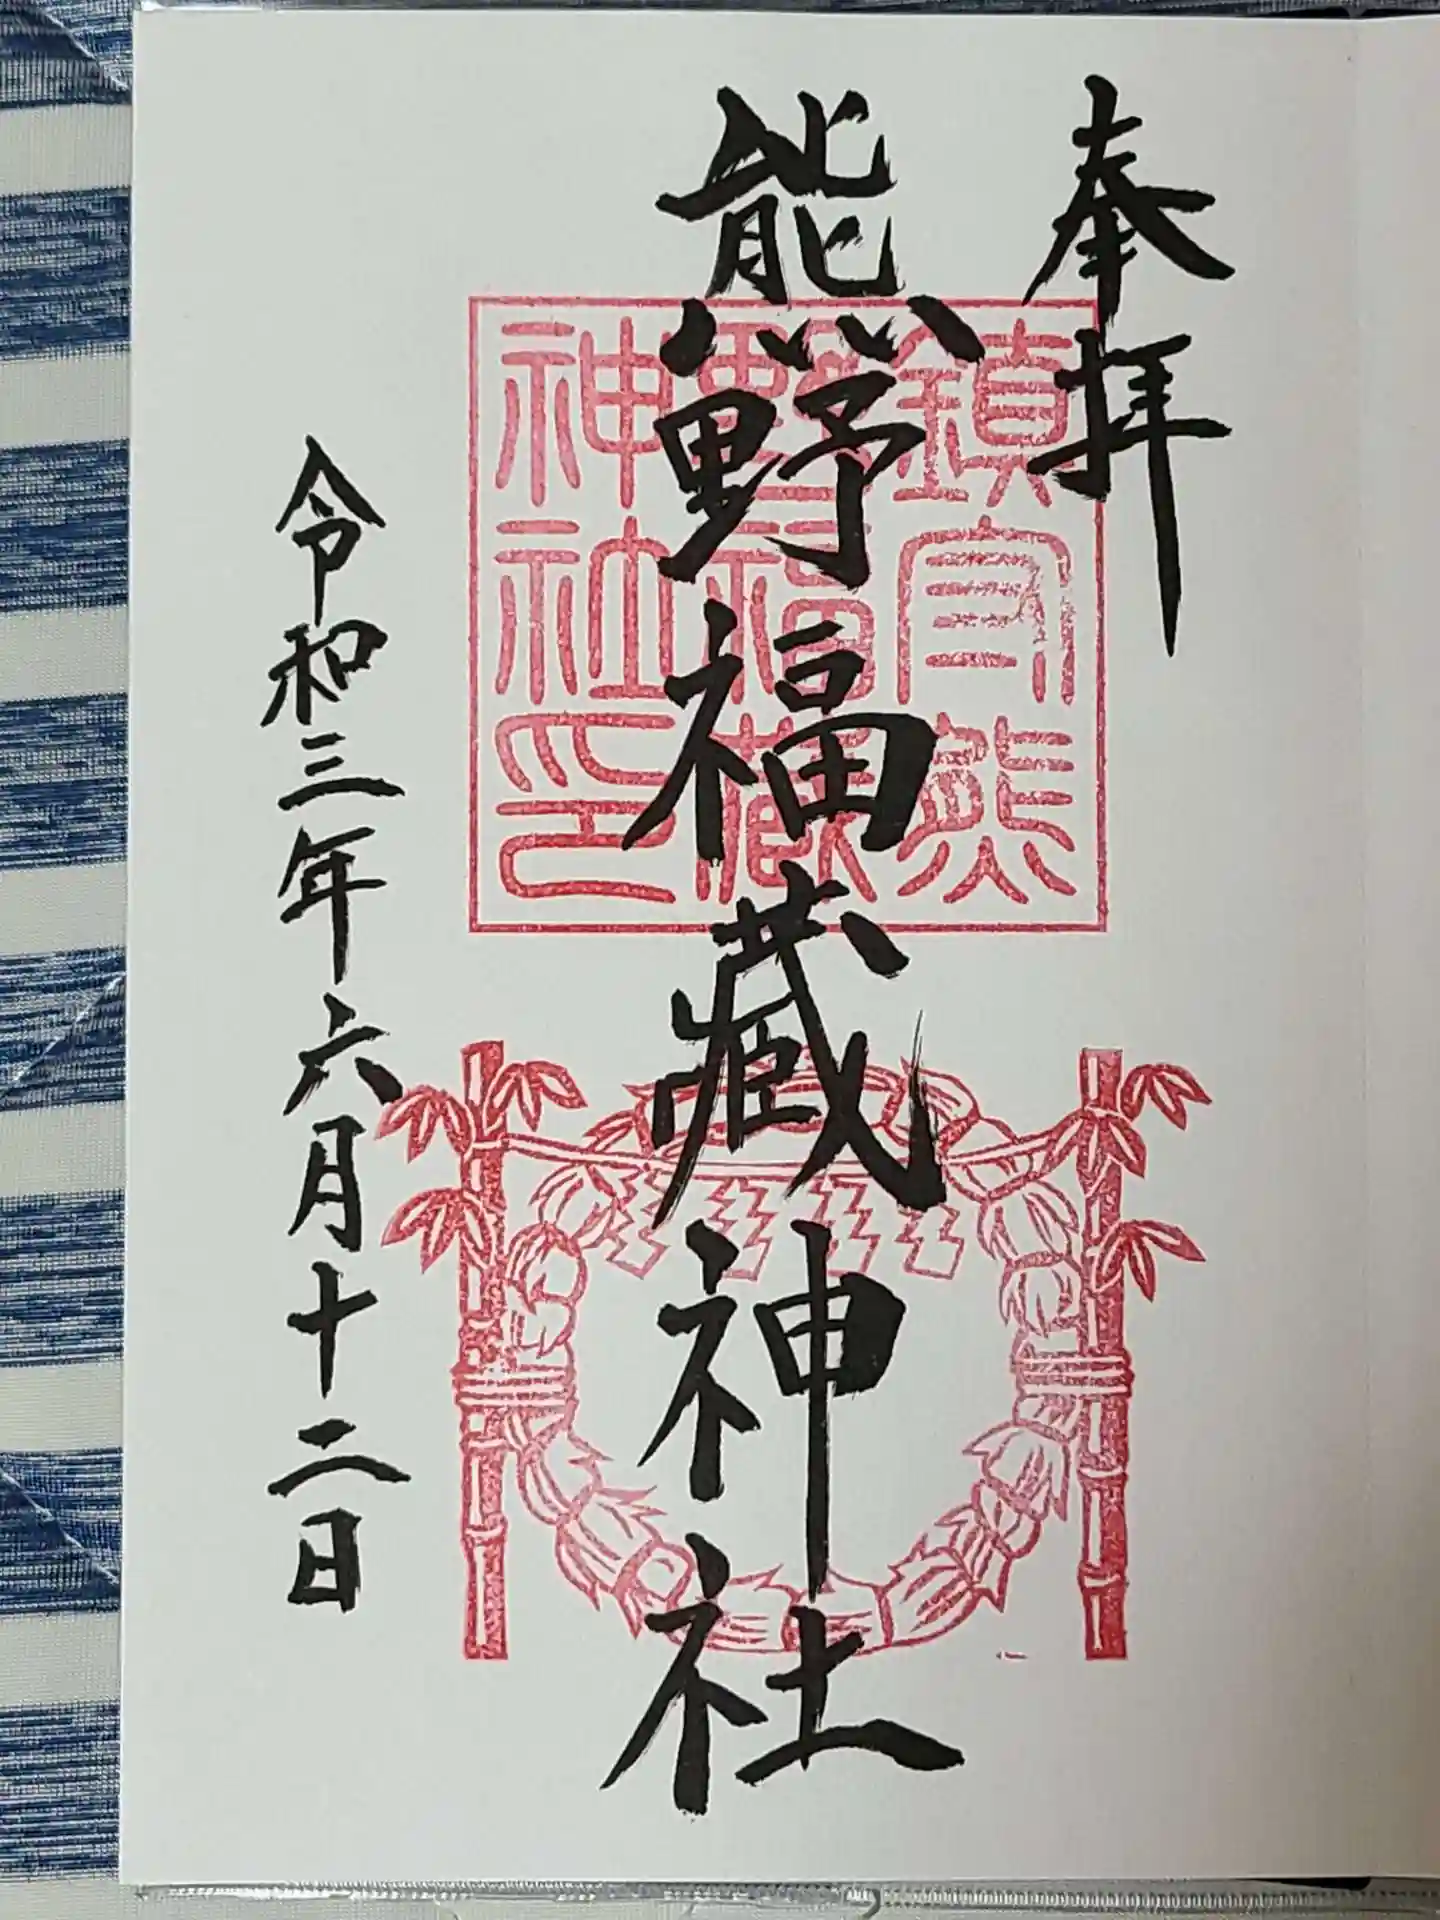 奉拝
熊野福藏神社
令和三年六月十二日
鎮官熊
野福藏
神社印